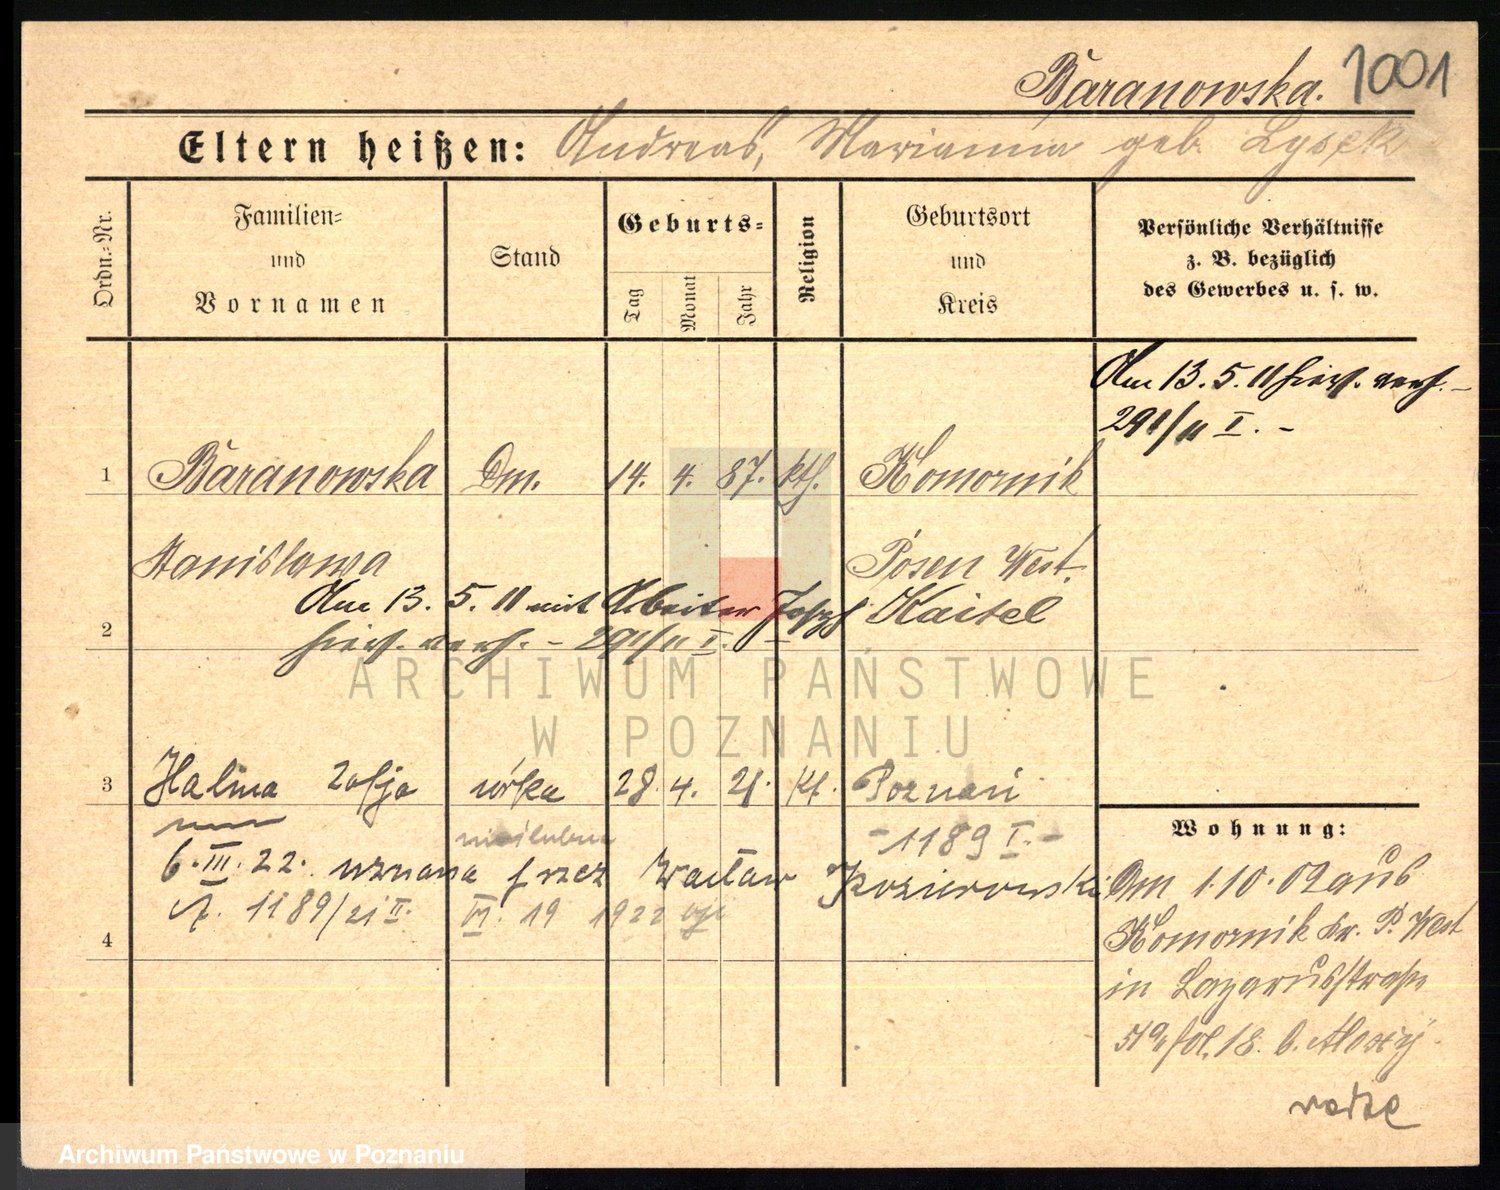 Baranowska. 1001
Eltern heißen: Andreas, Marianna geb. Lysek
Ordn.-Nr.
Familien-
und
Vornamen
Stand
Geburts-
Tag
Monat
Jahr
Religion
Geburtsort
und
Kreis
Persönliche Verhältnisse
z. B. bezüglich
des Gewerbes u. s. w.
Am 13. 5. 11 hier verh. -
291/11 I. -
1 Baranowska Dm. 14. 4. 87. kth. Komornik
Stanislawa Posen West.
Am 13. 5. 11 mit Arbeiter Josef Kaitel
2 hier verh. - 291/11 I. -
ARCHIWUM PAŃSTWOWE
W POZNANIU
3 Halina Zofja córka 28. 4. 21. kt. Poznań
- 1189 I. -
6. III. 22. uznana przez Wacław Kozierowski
1189/21 II. III. 19 1922
4
Wohnung:
Am 1.10.02 aus
Komornik Kr. P. West
in Lazarusstraße
18. b.
Archiwum Państwowe w Poznaniu